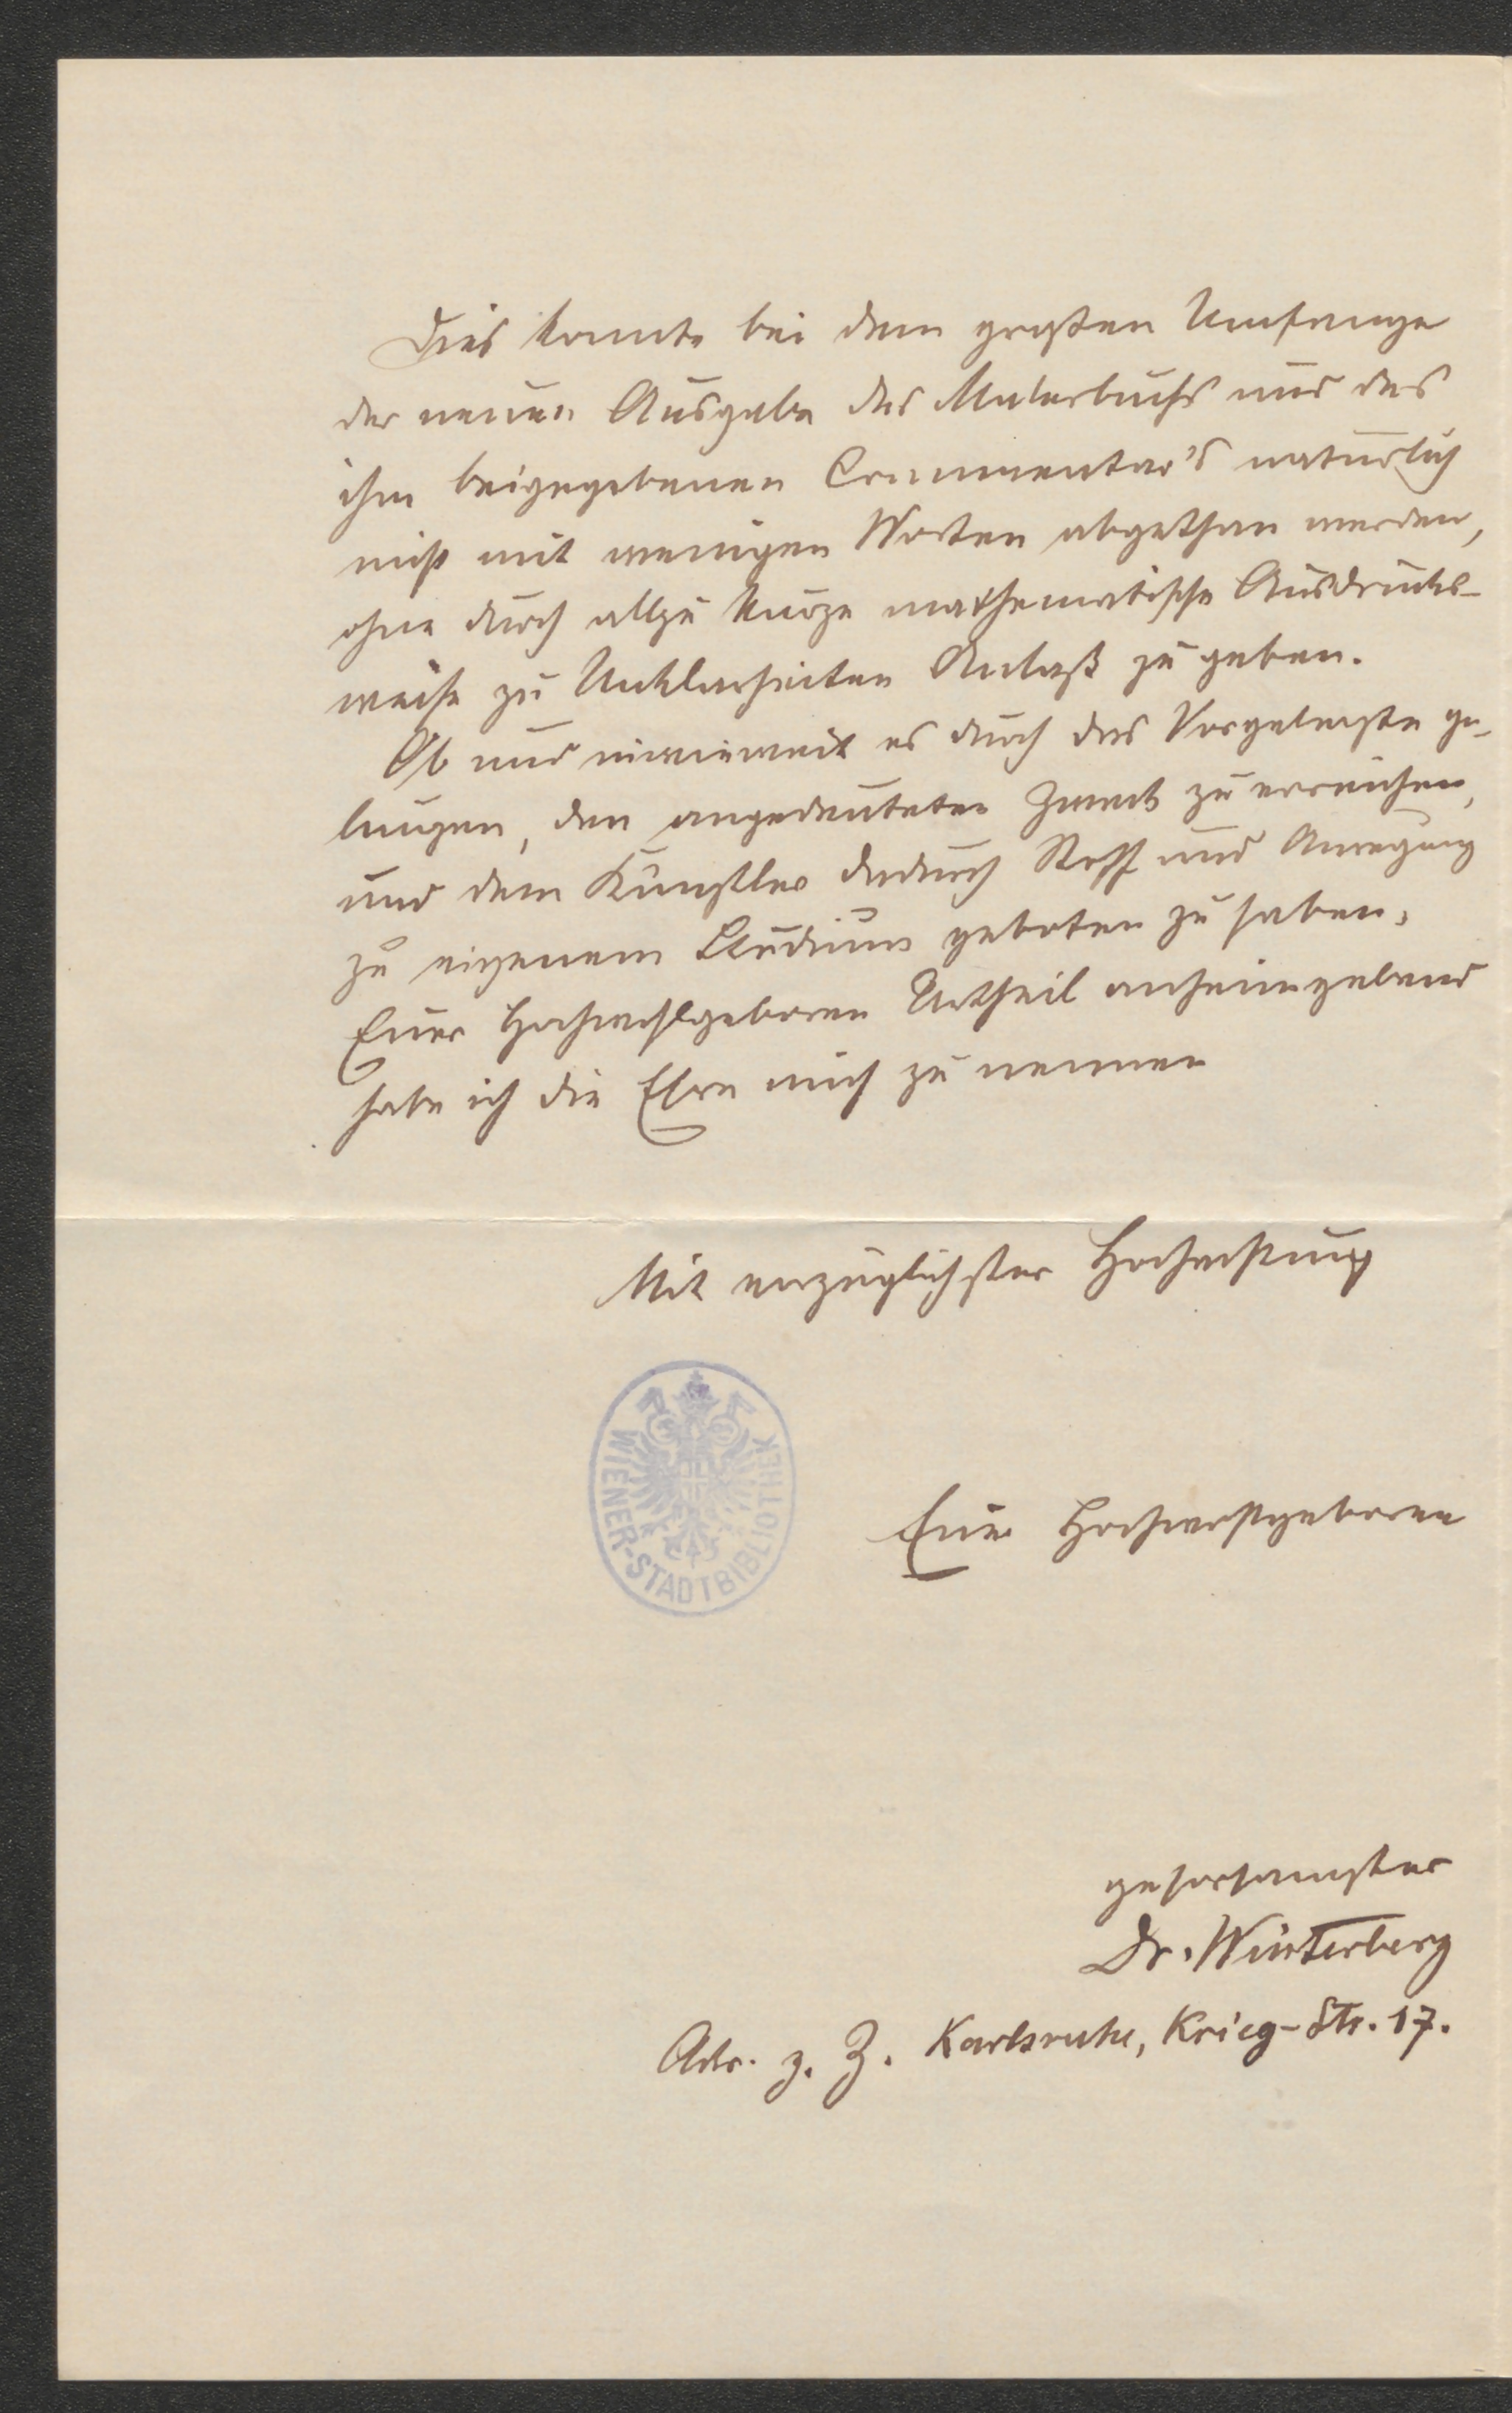 Dies konnte bei dem großen Umfange
der neuen Ausgabe des Malerbuchs und des
ihm beigegebenen Commentar's natürlich
nicht mit wenigen Worten abgethan werden,
ohne durch allzu kurze mathematische Ausdrucks-
weise zu Unklarheiten Anlaß zu geben.
Ob und inwieweit es durch das Vorgelegte ge-
lungen, den angedeuteten Zweck zu erreichen,
und dem Künstler dadurch Stoff und Anregung
zu eigenem Studium geboten zu haben,
Euer Hochwohlgeboren Urtheil anheimgebend
habe ich die Ehre mich zu nennen
Mit vorzüglichster Hochachtung
WIENER-STADTBIBLIOTHEK
Euer Hochwohlgeboren
gehorsamster
Dr. Winterberg
Adr. z. Z. Karlsruhe, Krieg-Str. 17.